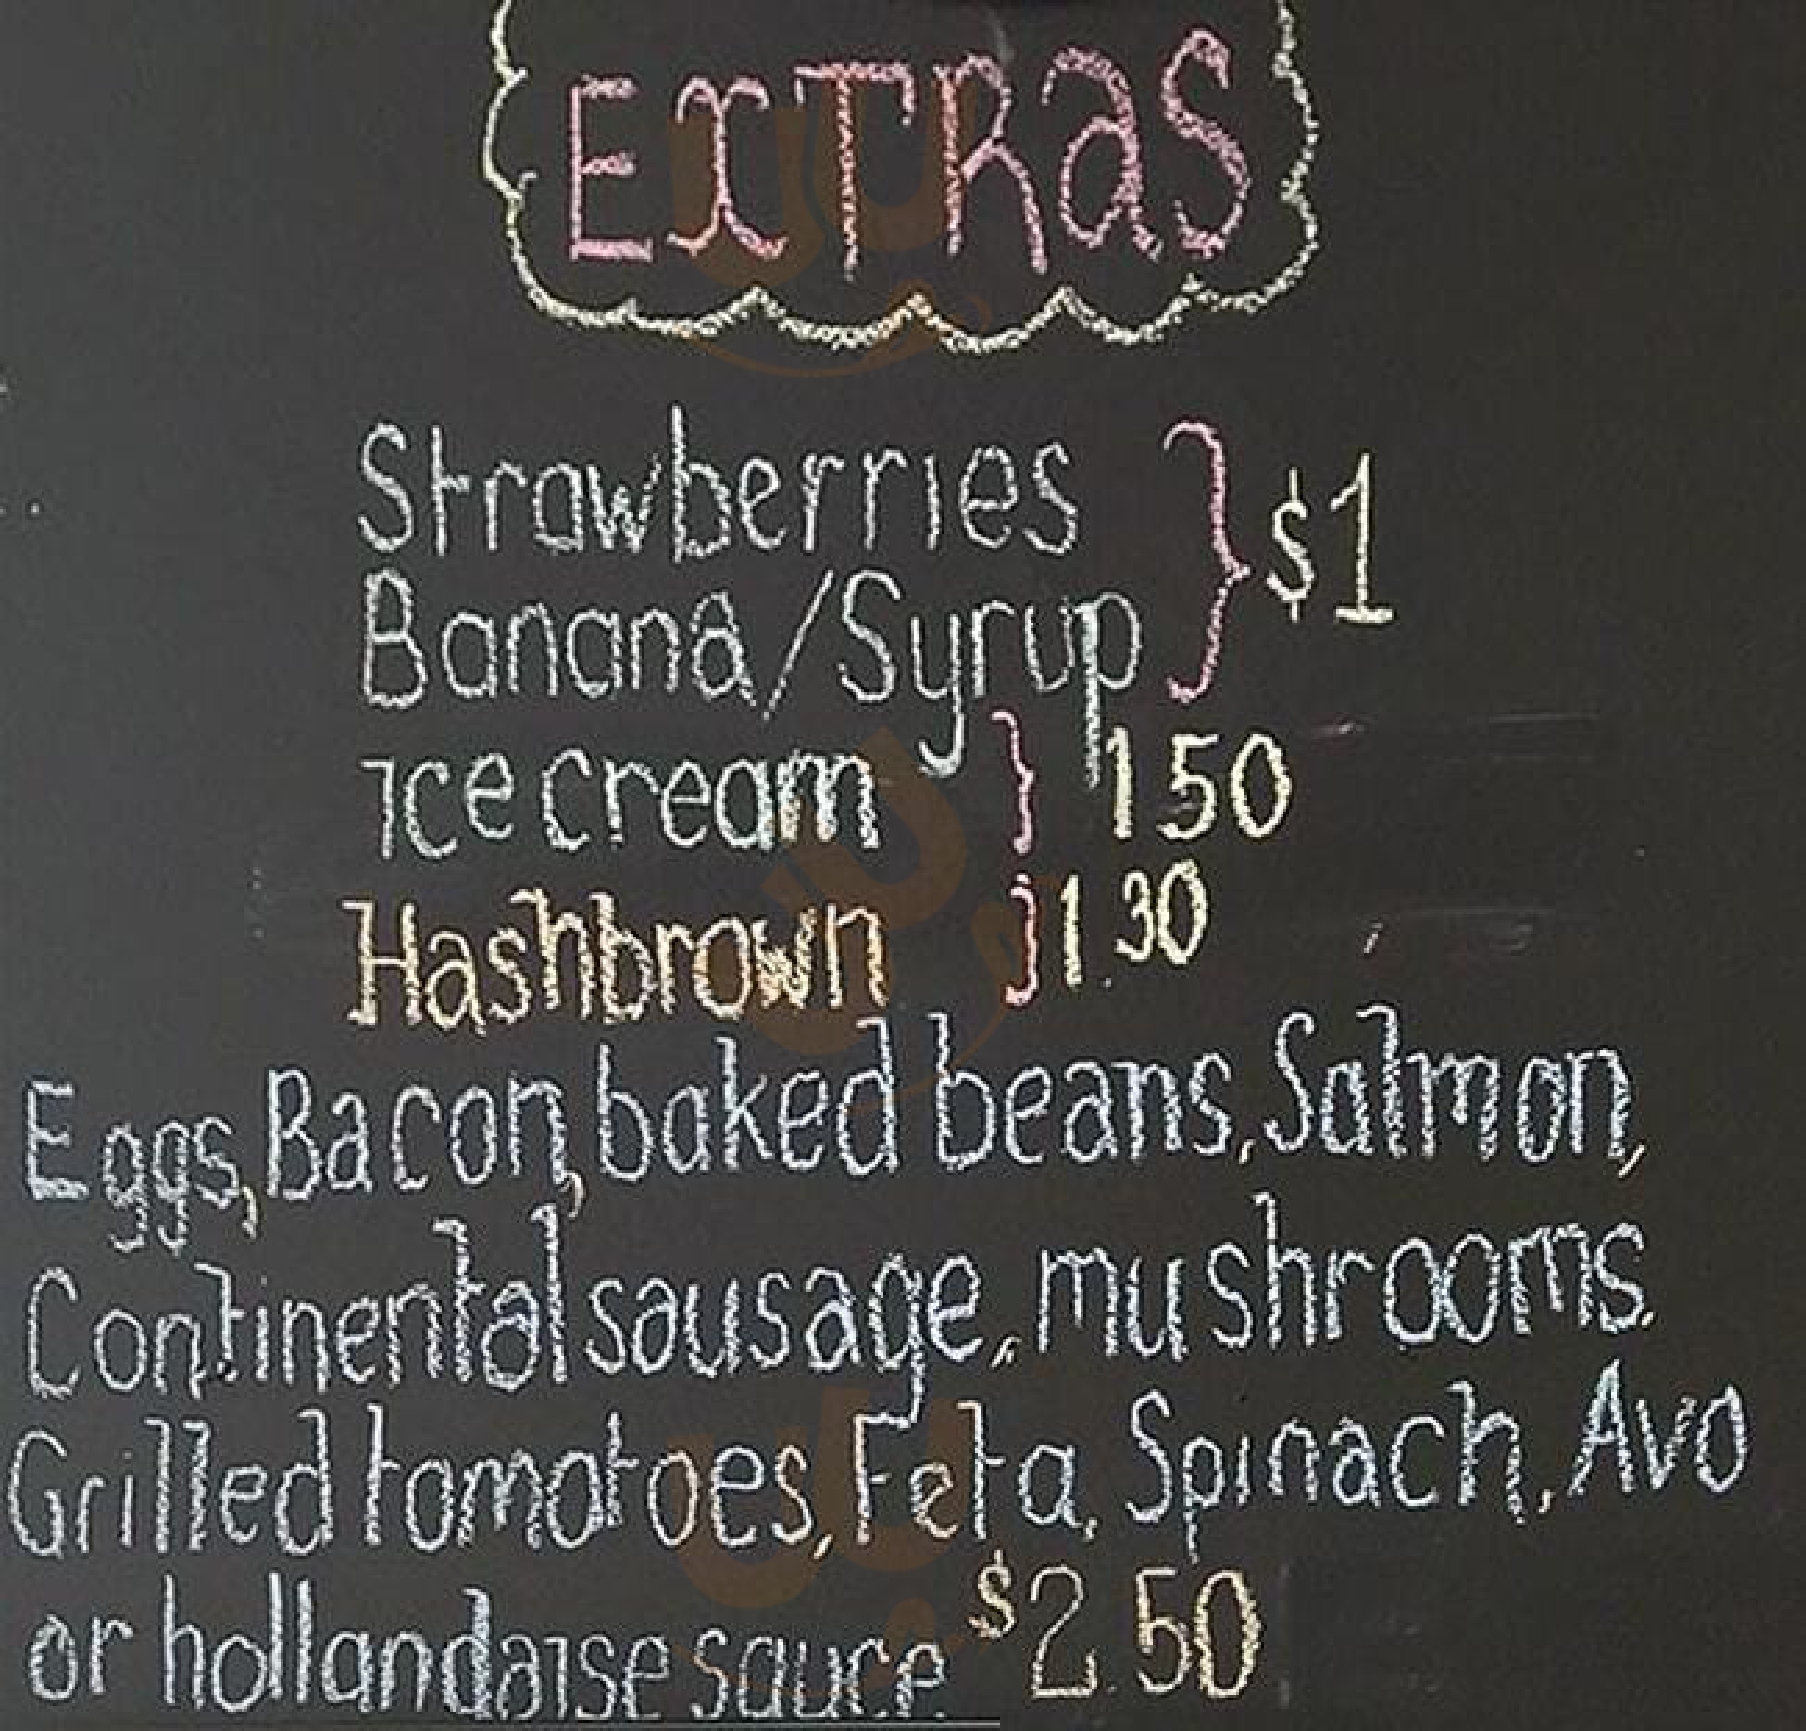 EXTRas
Strawberries
Banana/Syrup } $1
Ice cream } 1 50
Hashbrown } 1.30
Eggs, Bacon, baked beans, Salmon,
Continental sausage, mushrooms.
Grilled tomatoes, Feta, Spinach, Avo
or hollandaise sauce $2.50